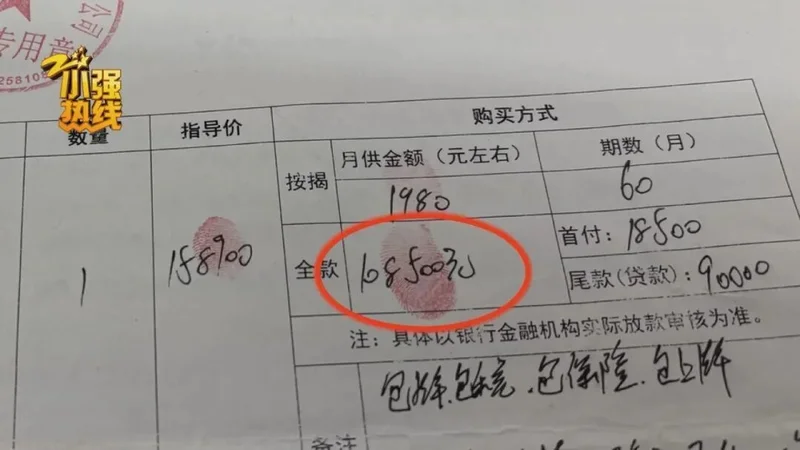 公司
专用章
258105
小强
热线
数量
指导价
购买方式
按揭
月供金额（元左右）
期数（月）
1980
60
1
158900
全款
108500元
首付：18500
尾款(贷款)：90000
注：具体以银行金融机构实际放款审核为准。
包保险、包上牌
备注